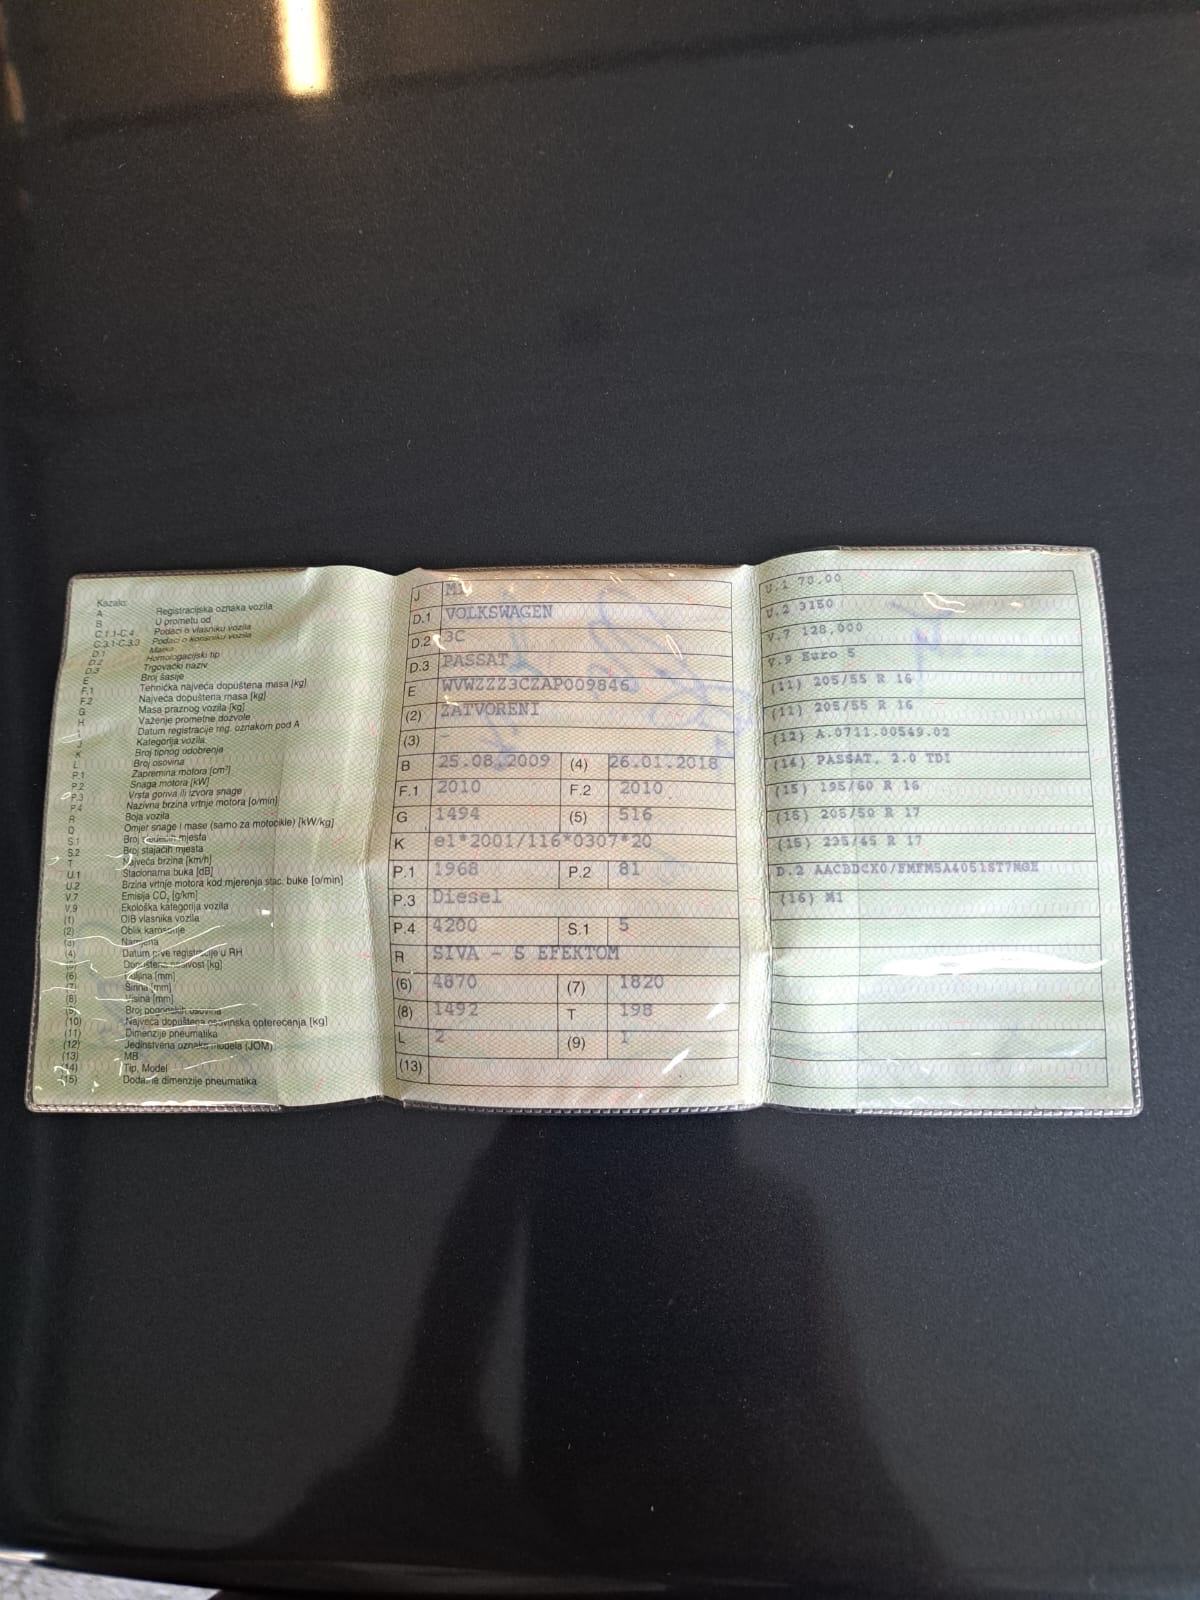 Kazalo:
A Registracijska oznaka vozila
B U prometu od
C.1.1-C.4 Podaci o vlasniku vozila
C.3.1-C.3.3 Podaci o korisniku vozila
D.1 Marka
D.2 Homologacijski tip
D.3 Trgovački naziv
E Broj šasije
F.1 Tehnička najveća dopuštena masa [kg]
F.2 Najveća dopuštena masa [kg]
G Masa praznog vozila [kg]
H Važenje prometne dozvole
I Datum registracije reg. oznakom pod A
J Kategorija vozila
K Broj tipnog odobrenja
L Broj osovina
P.1 Zapremina motora [cm³]
P.2 Snaga motora [kW]
P.3 Vrsta goriva ili izvora snage
P.4 Nazivna brzina vrtnje motora [o/min]
R Boja vozila
Q Omjer snage i mase (samo za motocikle) [kW/kg]
S.1 Broj sjedećih mjesta
S.2 Broj stajaćih mjesta
T Najveća brzina [km/h]
U.1 Stacionarna buka [dB]
U.2 Brzina vrtnje motora kod mjerenja stac. buke [o/min]
V.7 Emisija CO₂ [g/km]
V.9 Ekološka kategorija vozila
(1) OIB vlasnika vozila
(2) Oblik karoserije
(3) Namjena
(4) Datum prve registracije u RH
(5) Dopuštena nosivost [kg]
(6) Duljina [mm]
(7) Širina [mm]
(8) Visina [mm]
(9) Broj pogonskih osovina
(10) Najveća dopuštena osovinska opterećenja [kg]
(11) Dimenzije pneumatika
(12) Jedinstvena oznaka modela (JOM)
(13) MB
(14) Tip, Model
(15) Dodatne dimenzije pneumatika
J M1
D.1 VOLKSWAGEN
D.2 3C
D.3 PASSAT
E WVWZZZ3CZAP009846
(2) ZATVORENI
(3) -
B 25.08.2009 (4) 26.01.2018
F.1 2010 F.2 2010
G 1494 (5) 516
K e1*2001/116*0307*20
P.1 1968 P.2 81
P.3 Diesel
P.4 4200 S.1 5
R SIVA - S EFEKTOM
(6) 4870 (7) 1820
(8) 1492 T 198
L 2 (9) 1
(13)
U.1 70,00
U.2 3150
V.7 128,000
V.9 Euro 5
(11) 205/55 R 16
(11) 205/55 R 16
(12) A.0711.00549.02
(14) PASSAT, 2.0 TDI
(15) 195/60 R 16
(15) 205/50 R 17
(15) 235/45 R 17
D.2 AACBDCX0/FMFM5A4051ST7MGE
(16) M1